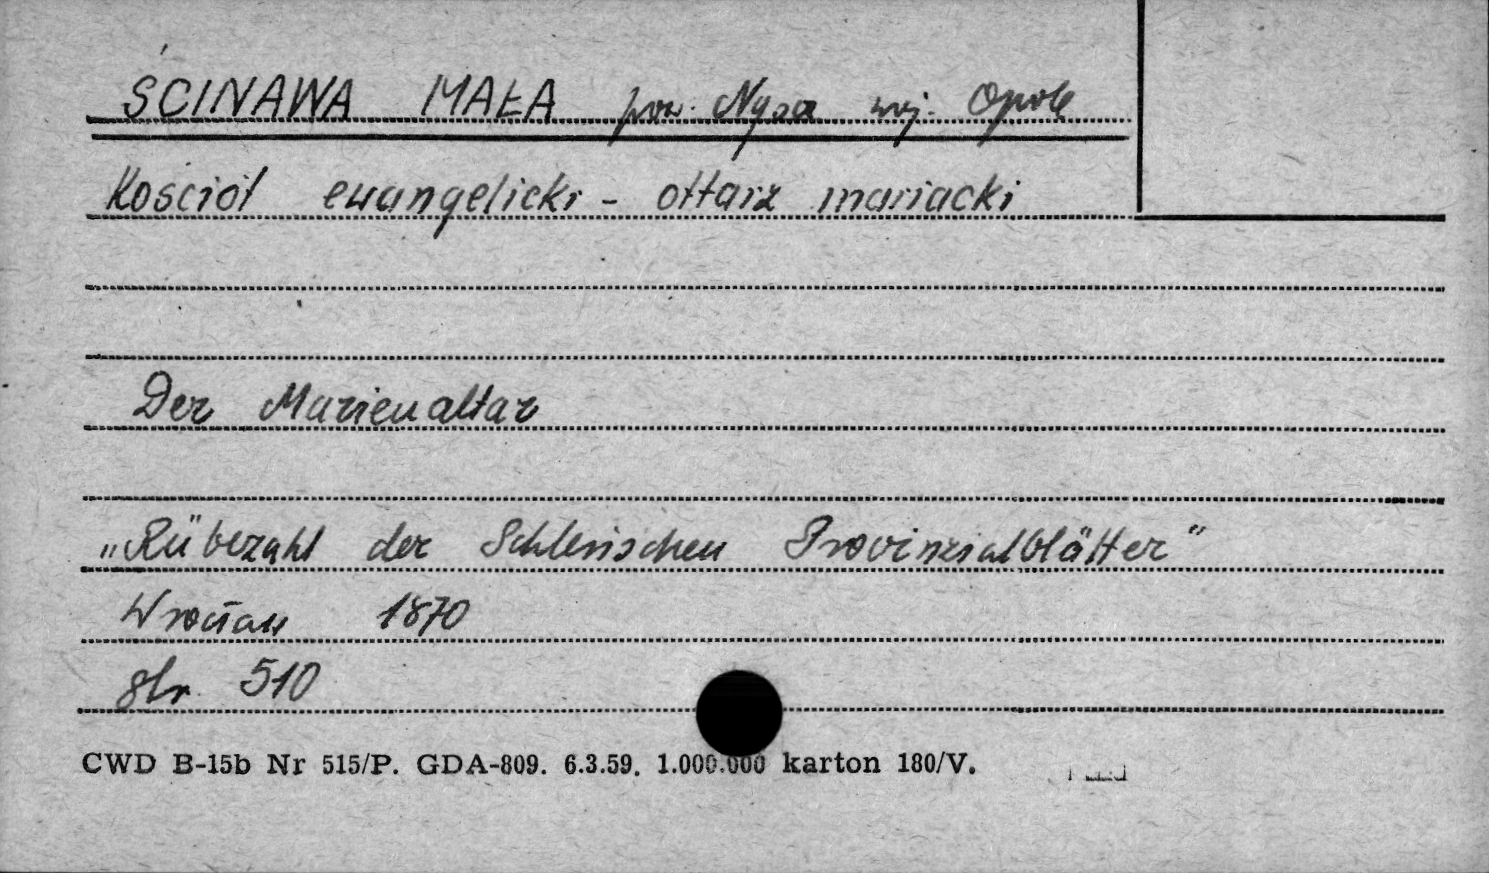 ŚCINAWA MAŁA pow. Nysa woj. Opole
Kościół ewangelicki - ołtarz mariacki
Der Marienaltar
„Rübezahl der Schlesischen Provinzialblätter"
Wrocław 1870
str. 510
CWD B-15b Nr 515/P. GDA-809. 6.3.59. 1.000.000 karton 180/V.